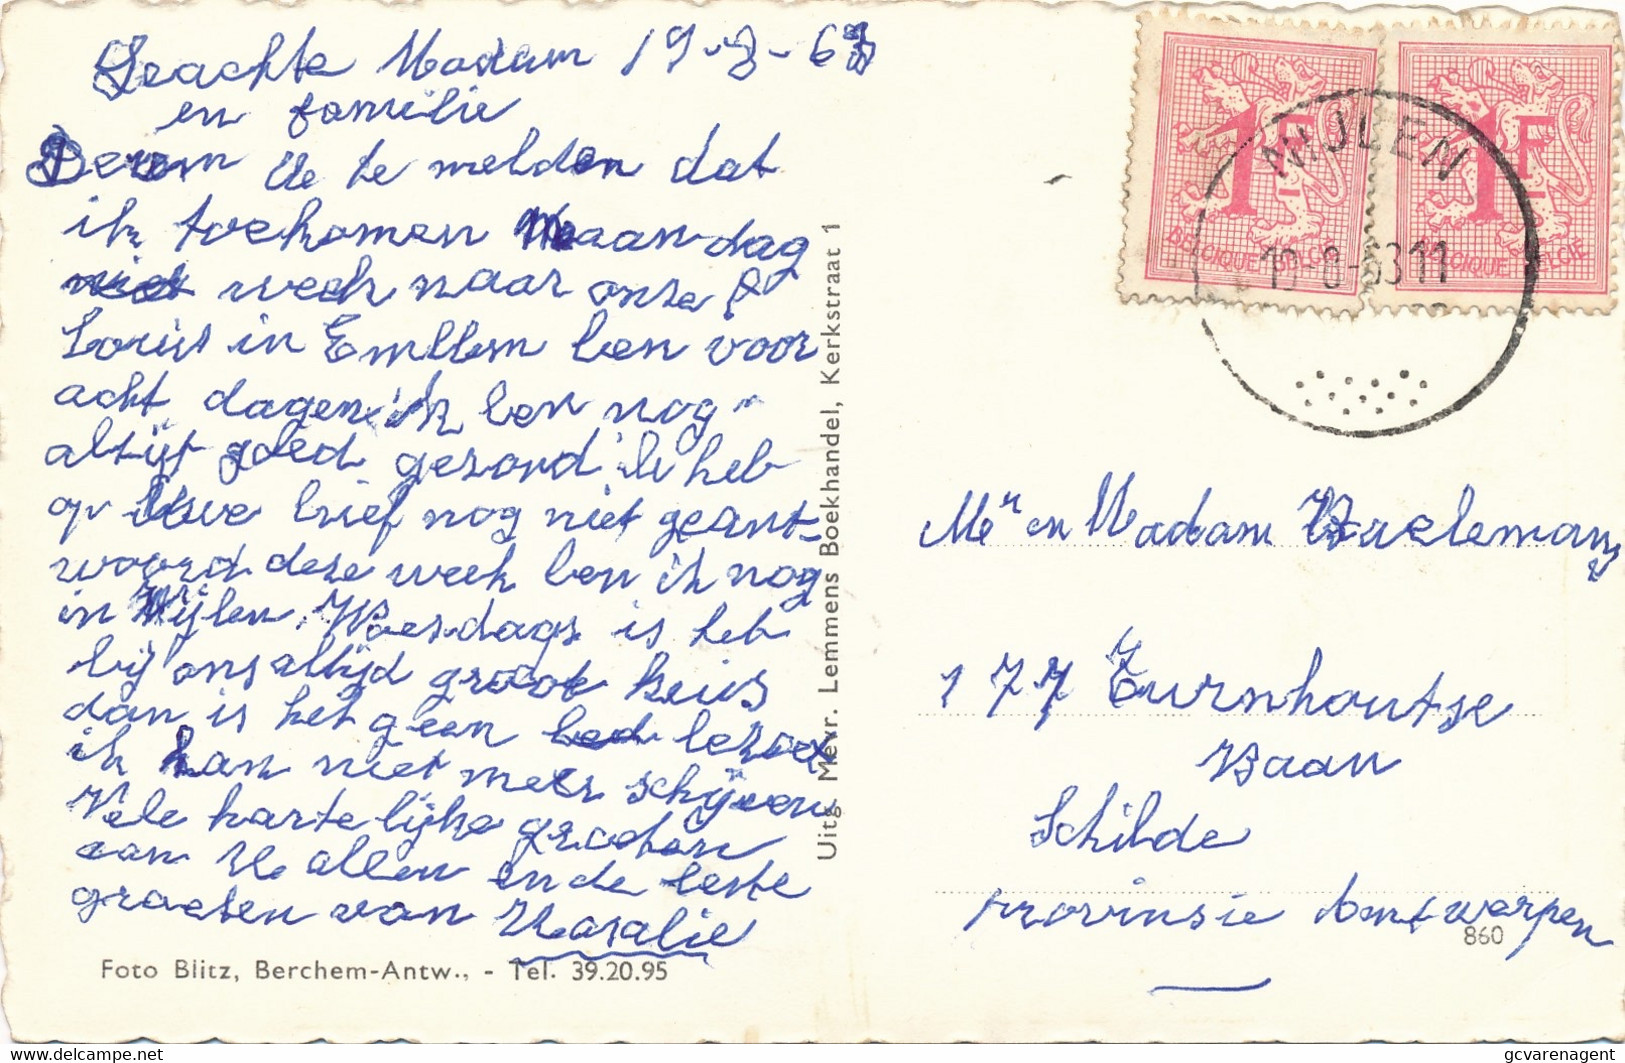 Geachte Madam 19-8-63
en familie
U te melden dat
ik toekomen Maandag
week naar onze
Louis in Emllem ben voor
acht dagen ik ben nog
altijt goed gezond ik heb
op Uwe brief nog niet geant-
woord deze week ben ik nog
in Nijlen. Woesdags is heb
bij ons altijd groot kuis
dan is het geen
ik kan niet meer schijven
Vele hartelijke groeten
aan U allen en de beste
groeten van Rosalie
Foto Blitz, Berchem-Antw., - Tel. 39.20.95
Uitg Mevr. Lemmens Boekhandel, Kerkstraat 1
1F
BELGIQUE BELGIE
1F
BELGIQUE BELGIE
NIJLEN
19-8-63 11
Mr en Madam
177 Turnhoutse
Baan
Schilde
provinsie Antwerpen
860
www.delcampe.net
gcvarenagent